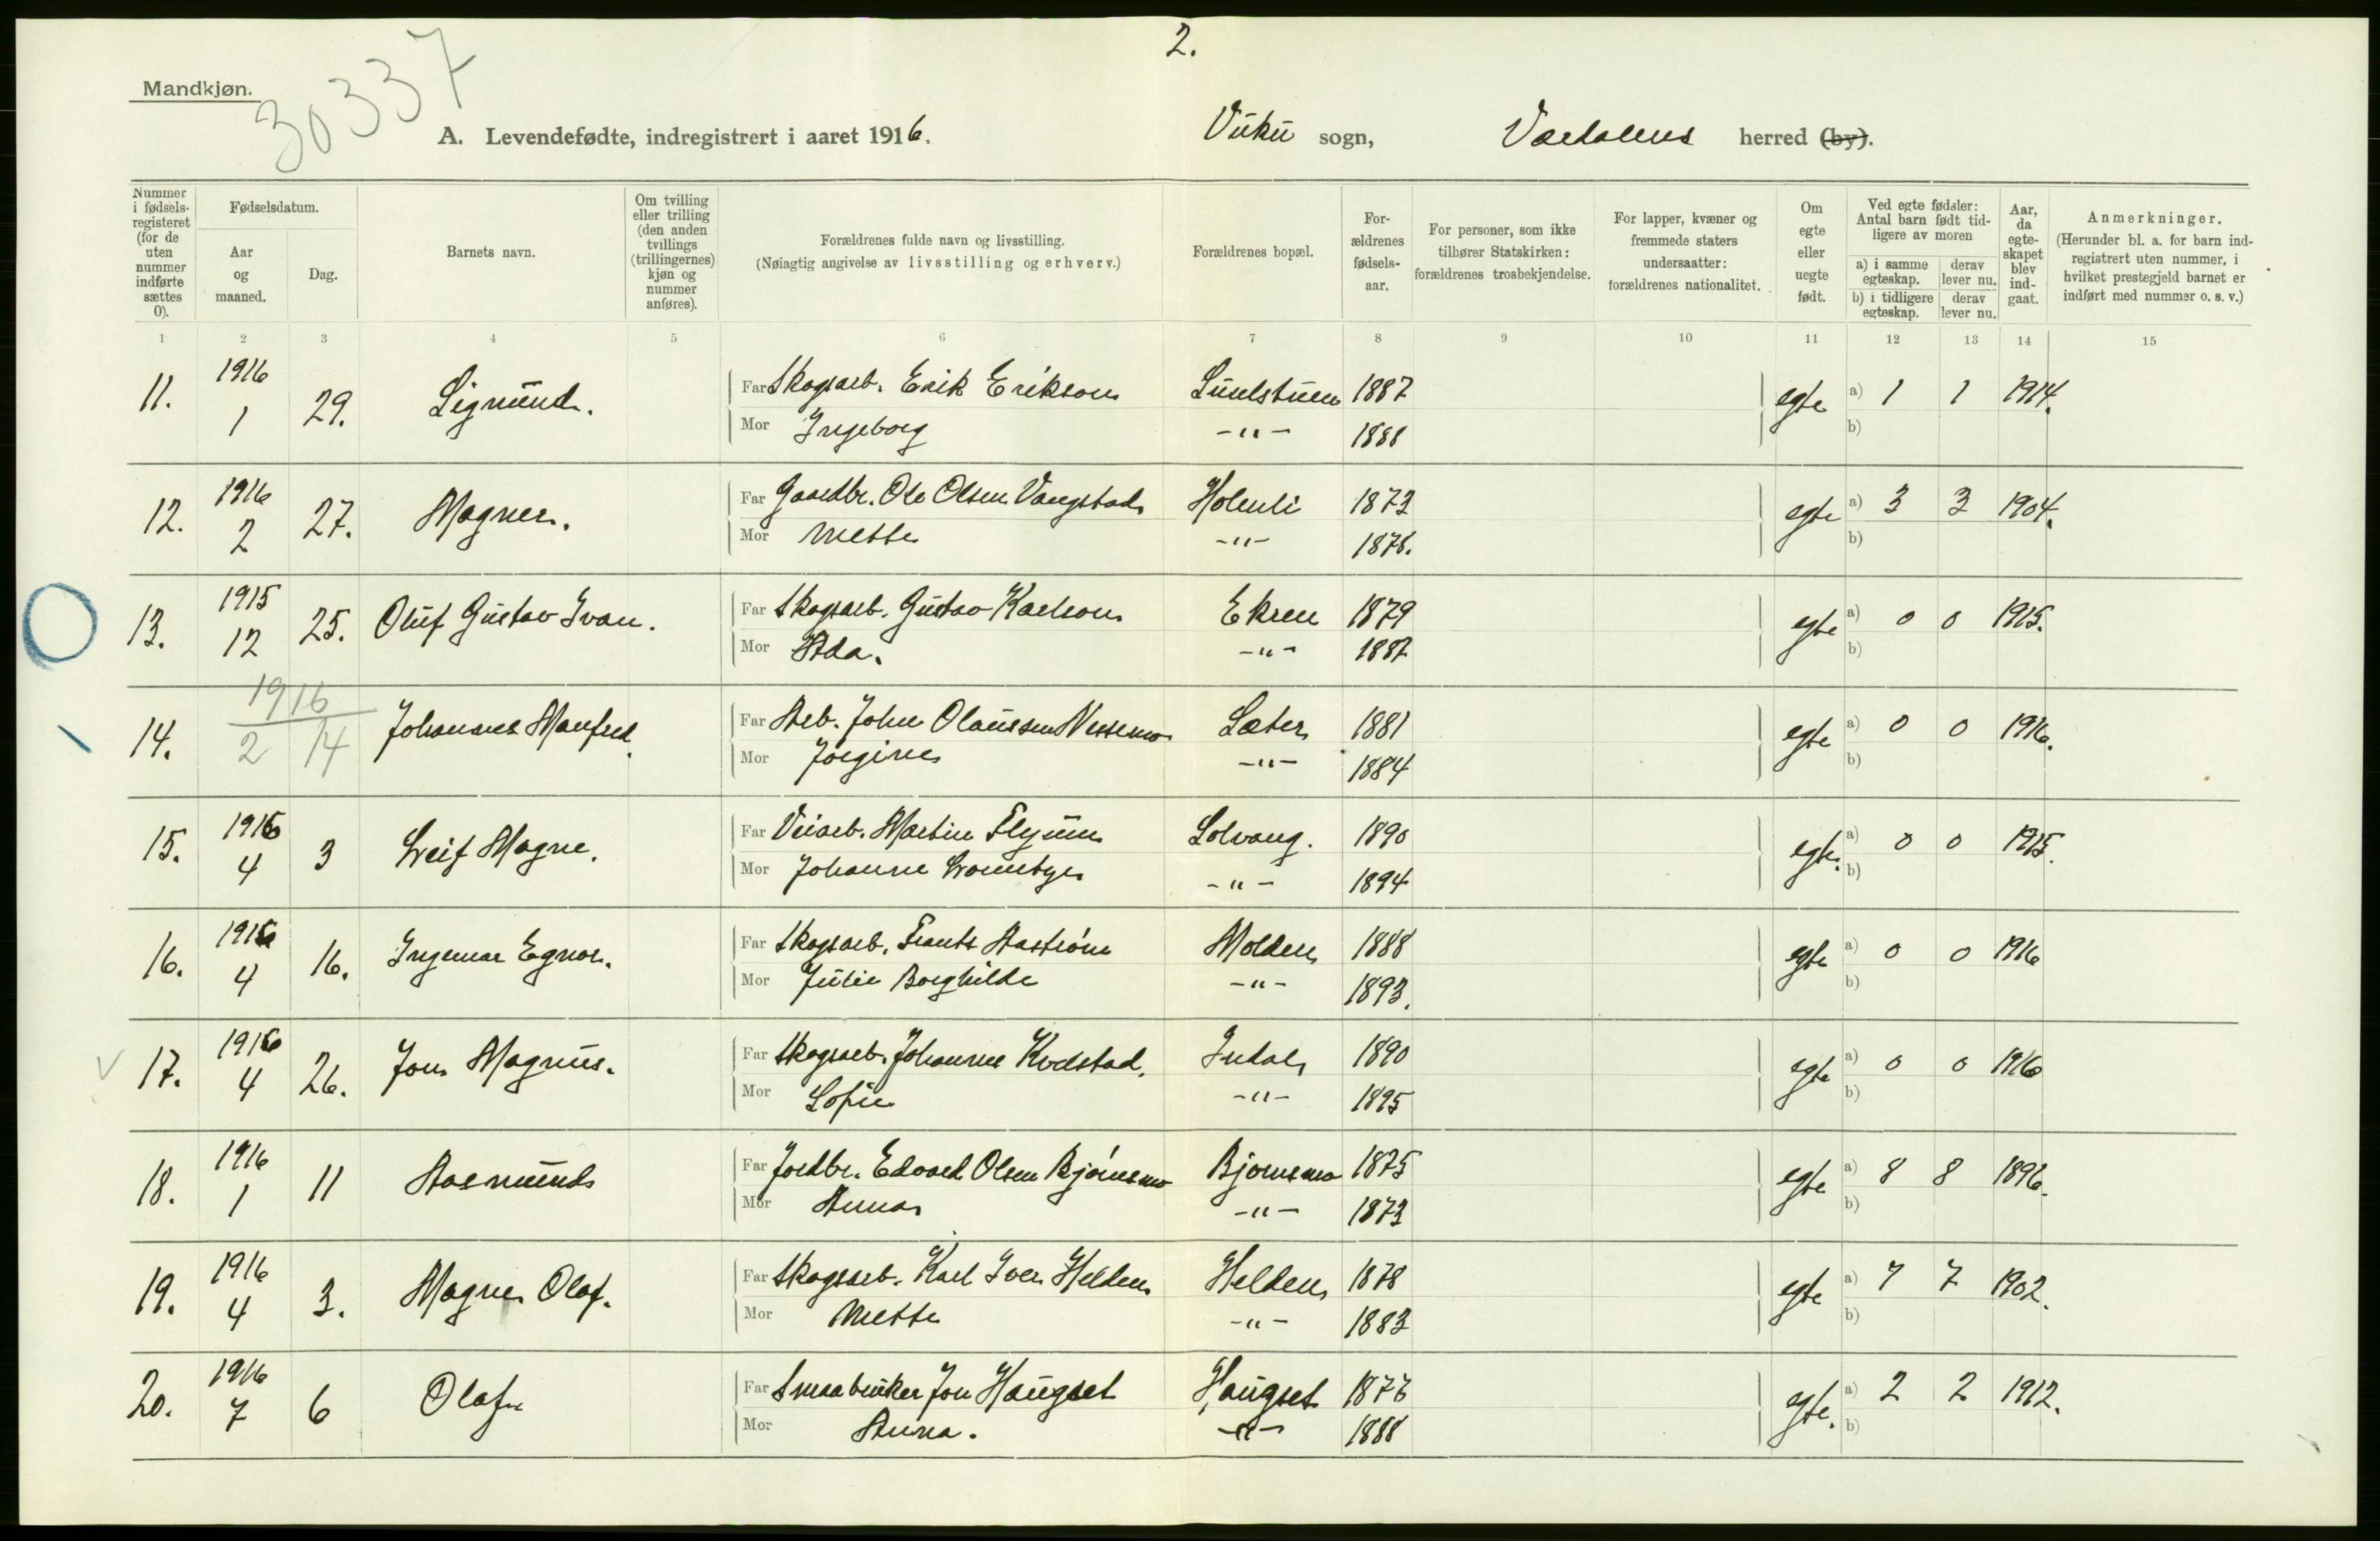 2.
Mandkjøn.
30337
A. Levendefødte, indregistrert i aaret 1916. Vuku sogn, Værdalens herred (by).
Nummer i fødselsregisteret (for de uten nummer indførte sættes 0).
Fødselsdatum.
Aar og maaned.
Dag.
Barnets navn.
Om tvilling eller trilling (den anden tvillings (trillingernes) kjøn og nummer anføres).
Forældrenes fulde navn og livsstilling.
(Nøiagtig angivelse av livsstilling og erhverv.)
Forældrenes bopæl.
Forældrenes fødselsaar.
For personer, som ikke tilhører Statskirken: forældrenes trosbekjendelse.
For lapper, kvæner og fremmede staters undersaatter: forældrenes nationalitet.
Om egte eller uegte født.
Ved egte fødsler: Antal barn født tidligere av moren
a) i samme egteskap. derav lever nu.
b) i tidligere egteskap. derav lever nu.
Aar, da egteskapet blev indgaat.
Anmerkninger.
(Herunder bl. a. for barn indregistrert uten nummer, i hvilket prestegjeld barnet er indført med nummer o. s. v.)
1 2 3 4 5 6 7 8 9 10 11 12 13 14 15
11. 1916 1 29. Sigmund. Far Skogsarb. Erik Erikson 1887 egte a) 1 1 1914.
Mor Ingeborg -"- 1888 b)
12. 1916 2 27. Magner. Far Gaardbr. Ole Olsen Vangstad Holmli 1873 egte a) 3 3 1904.
Mor Mette -"- 1876. b)
13. 1915 12 25. Oluf Gustav Ivan. Far Skogsarb. Gustav Karlson Ekren 1879 egte a) 0 0 1915.
Mor Ada. -"- 1887 b)
14. 1916 2 14 Johannes Manfred. Far Arb. John Olaussen Nessemo Sæter 1881 egte a) 0 0 1916.
Mor Jørgine -"- 1884 b)
15. 1916 4 3 Leif Magne. Far Veiarb. Martin Flyum Solvang. 1890 egte. a) 0 0 1915.
Mor Johanne -"- 1894 b)
16. 1916 4 16. Ingemar Egnor. Far Skogsarb. Frants Aastrøm Molden 1888 egte a) 0 0 1916
Mor Julie Borghilde -"- 1893. b)
17. 1916 4 26. Jon Magnus. Far Skogsarb. Johannes Kvelstad. Indal 1890 egte a) 0 0 1916
Mor Sofie -"- 1895 b)
18. 1916 1 11 Aasmund Far Jordbr. Edvard Olsen Bjørnsmo Bjørnsmo 1875 egte a) 8 8 1896.
Mor Anna -"- 1873 b)
19. 1916 4 3. Magne Olaf. Far Skogsarb. Karl Iver Helden Helden 1878 egte a) 7 7 1902.
Mor Mette -"- 1883 b)
20. 1916 7 6 Olaf Far Smaabruker Jon Haugset Haugset 1876 egte. a) 2 2 1912.
Mor Anna. -"- 1888 b)